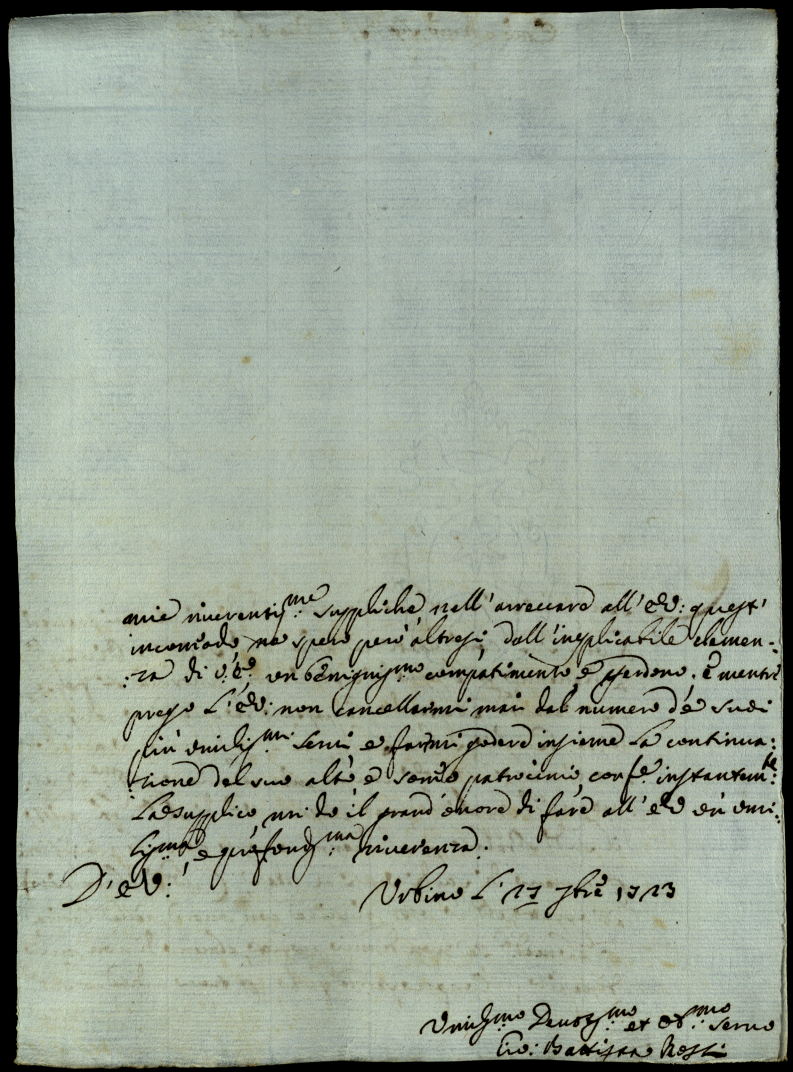 mie riverentis.me suppliche nell'arreccare all'E.V: quest'
incomodo ne spero però altresi, dall'inesplicabile clemen-
:za di V.E. un benignis.mo compatimento, e perdono. E mentre
prego L'E.V: non cancellarmi mai dal numero dé suoi
più umilis.mi servi e farmi godere insieme la continua:
zione del suo alto e patrocinio come instantem.te
La supplico mi do il grand'onore di fare all'E.V. un umi:
lis.mo e profond.ma riverenza.
D'E.V:
Urbino L' 27 7bre 1723
Umilis.mo Devotis.mo et Ob.mo Servo
Gio: Battista Rossi